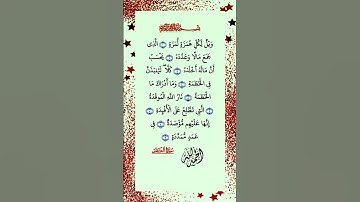 بسم الله الرحمن الرحيم
وَيْلٌ لِّكُلِّ هُمَزَةٍ لُّمَزَةٍ ۝ الَّذِي
جَمَعَ مَالًا وَعَدَّدَهُ ۝ يَحْسَبُ
أَنَّ مَالَهُ أَخْلَدَهُ ۝ كَلَّا لَيُنبَذَنَّ
فِي الْحُطَمَةِ ۝ وَمَا أَدْرَاكَ مَا
الْحُطَمَةُ ۝ نَارُ اللَّهِ الْمُوقَدَةُ
۝ الَّتِي تَطَّلِعُ عَلَى الْأَفْئِدَةِ ۝
إِنَّهَا عَلَيْهِم مُّؤْصَدَةٌ ۝ فِي
عَمَدٍ مُّمَدَّدَةٍ ۝